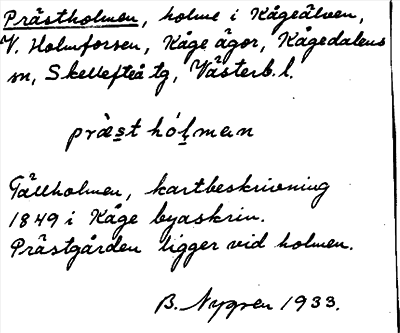 Prästholmen, holme i Kågeälven,
V. Holmforsen, Kåge ägor, Kågedalens
sn, Skellefteå tg, Västerb. l.
præst hólman
Tällholmen, kartbeskrivning
1849 i Kåge byaskrin.
Prästgården ligger vid holmen.
B. Nygren 1933.